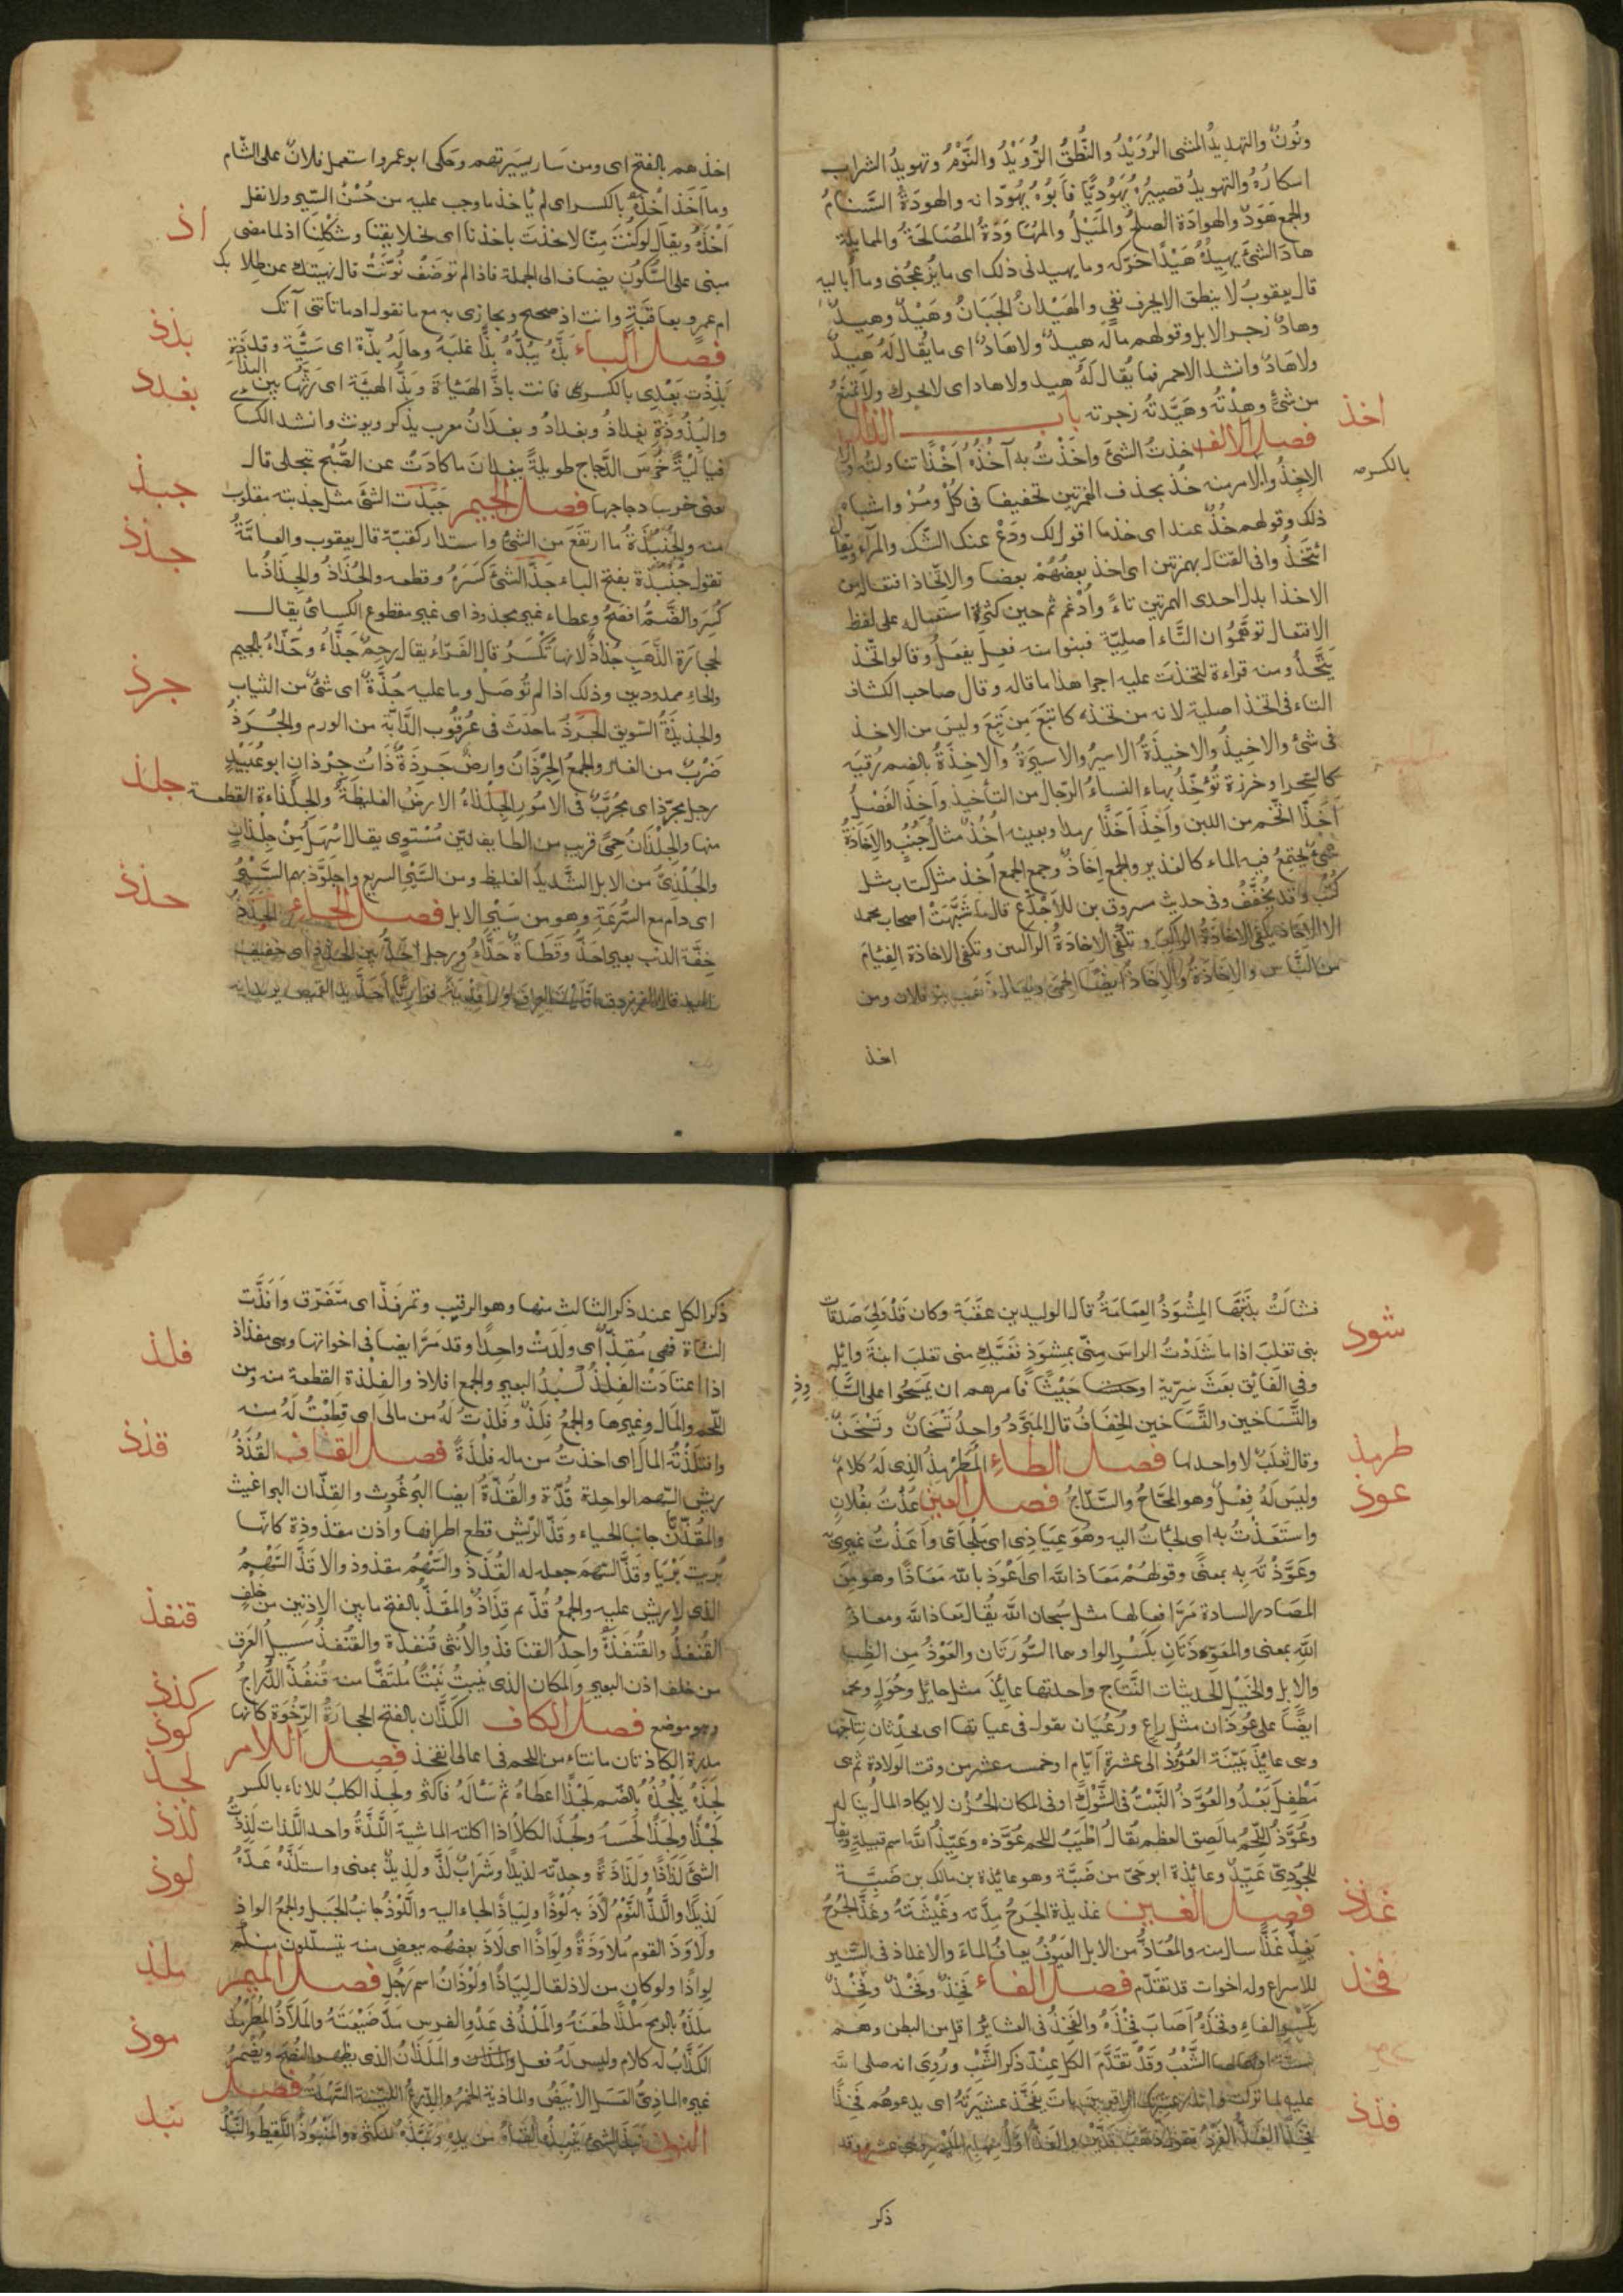 ونُونٌ والتهديدُ المشى الرُوَيْدُ والنُّطقُ الرُّوَيْدُ والنَّوْمُ وتهويدُ الشراب
اسكارُهُ والتهويدُ تصييرُهُ يَهُودِيًّا فاَبُوهُ يُهَوّدانه والهودَةُ السَّنامُ
والجمع هَوَدٌ والهوادَة الصلحُ والمَيْلُ والمُهَاوَدَةُ المُصَالحَةُ والممايلة
هادَ الشئَ يهِيدُهُ هَيْدًا حَرّكه وما يهيدنى ذلك اى ما يُزعجُنى وما أُباليه
قال يعقوبُ لا ينطق الا بحرف نفي والهَيْدانُ الجَبَانُ وهَيْدٌ وهيدٌ
وهادٌ زجر الابل وقولهم ماله هيدٌ ولا هَادٌ اى ما يُقال لَهُ هَيدٌ
ولا هَادٌ وانشد الاحمر فما يُقال لَهُ هيد ولا هاد اى لا يحرك ولا يُمنَعُ
من شئٍ وهِدْتُه وهَيَّدتُه زجرته باب الذال
اخذ
فصل الالف اخذتُ الشئَ واخَذْتُ به آخُذُهُ أخْذًا تناولتُه
بالكسر صح
الاِخِذُ والامر منه خُذْ بحذف الهمزتين تخفيفا فى كُلْ ومُرْ واشباه
ذلك وقولهم خُذْ عند اى خذ ما اقول لك ودَعْ عنك الشّك والمراء ويقال
ائتَخَذُوا فى القتال بهمزتين اى اخذ بعضُهُمْ بعضا والاتّخاذ افتعال من
الاخذ ابدل احدى الهمزتين تاءً وأُدْغم ثم حين كثرة استعماله على لفظ
الافتعال توهَّمُوا ان التّاء اصليّة فبنوا منه فعِلَ يفعَلُ وقالوا تَخِذَ
يَتْخَذُ ومنه قراءة لَتَخِذْتَ عليه اجرا هذا ما قاله وقال صاحب الكشاف
التاء فى اتخذ اصلية لانه من تخذ كاتبَعَ مِن تَبِعَ وليسَ من الاخذ
فى شئ والاخِيذُ والاخيذَةُ الاسيرُ والاسيرَةُ والاُخذَةُ بالضم رُقيَه
كالسِّحر او خرزة تُؤخِّذُ بها النساءُ الرّجال من التأخيذ واَخِذَ الفَصْلُ
أخَذًا اتّخم من اللبن واَخِذَ أخَذًا رمد وبعينه أُخُذٌ مثالُ جُنُبٍ والاِخَاذَةُ
شئٌ يجتمعُ فيه الماء كالغدير والجمع اِخَاذٌ وجمع الجمع أُخذ مثل كتاب مثل
كُتُب وقد يُخفَّفُ وفى حديث مسروق بن الاجْدَع قال ما شَبَّهْتُ اصحاب محمد
الا الاِخاذ تكفى الاخاذَةُ الراكبَ وتكفى الاخاذَةُ الراكبين وتكفى الاخاذة الفِئامَ
من النّاس والاِخَاذَةُ والاِخَاذُ ايضًا ومن
اخذ
اخذهم بالفتح اى ومن سَار بسِيرتهم وحَكى ابو عمرو استعمل فلانٌ على الشّام
وما اَخَذَ اِخْذَهُ بالكسر اى لم يَأخذ ما وجب عليه من حُسْنِ السِّيرة ولا تقل
اذ
أخْذَهُ ويقال لو كُنْتَ منّا لاخذتَ باخذنا اى بخلايقِنا وشَكْلِنا اذ لما مضى
مبنى على السُّكُونِ يضاف الى الجملة فاذا لم تُوصَفْ نُوّنَتْ قال نهيتك عن طِلا بك
ام عمرو بعاقبَةٍ وانت اذ صحيح ويجازى به مع ما تقول اذ ما تاتنى آتك
بذذ
فصل الباء بذّهُ يبُذّهُ بَذًّا غلبَهُ وحالةٌ بذّة اى سَيِّئَة وقد
بغدد
بَذِذْتَ بَعْدِى بالكسر فانت باذُّ الهَيئةِ وبَذُّ الهيئَة اى رَثُّها بين البذاذة
والبُذوذَةِ بغداذُ وبغدادُ وبغدانُ معرب يذكر ويونث وانشد الكسا
فيا ليلةً خُرْسَ الدَّجاج طويلةً ببغدان ما كادَتْ عن الصُّبْح تنجلى قال
جبذ
يعنى خرسا دجاجها فصل الجيم جَبَذتُ الشئَ مثل جذبته مقلوب
جذذ
منه والجُنْبُذَةُ ما ارتفَعَ من الشئِ واستدار كقبّة قال يعقوب والعامَّةُ
تقول جُنْبَذة بفتح الباء جَذَّ الشئَ كَسَرَهُ وقطعه والجُذاذُ والجِذَاذُ ما
كُسِرَ والضَّمُّ افصَحُ وعطاء غير مجذوذ اى غير مقطوع الكسائىُ يقال
لحجارة الذّهب جُذاذٌ لانها تُكْسَرُ قال الفَرّاءُ يقال رحِمٌ جَذَّاءُ وحَذّاءُ بالجيم
جرذ
والحاء ممدودين وذلك اذا لم تُوصَلْ وما عليه جُذّةٌ اى شئٌ من الثياب
والجذيذةُ السّويق الجَرَذُ ما حدَثَ فى عُرقُوب الدَّابّة من الورم والجُرَذُ
ضَرْبٌ من الفار والجمعُ الجِرْذانُ وارضٌ جَرِذَةٌ ذَاتُ جِرْذانٍ ابو عُبَيدٍ
جلذ
رجل مجرّذ اى مُجرَّبٌ فى الامُور الجِلذاءُ الارضُ الغليظَةُ والجِلْذاءَة القطعة
منها والجِلْذَانُ حِمًى قريب من الطايف ليّن مُسْتَوٍى يقال اسْهَلُ مِنْ جِلْذَانٍ
والجُلْذِىُّ من الابل الشَّديدُ الغليظ ومن السَّيْرِ السريع واجلَوَّذ بهم السَّيْرُ
حذذ
اى دام مع السُّرعَةِ وهو من سَيْرِ الابل فصل الحاء الحَذَذُ
خِفّة الذنب بعيرٌ احَذُّ وقَطَاةٌ حَذَّاءُ ورجل احَذُّ بين الحذذ اى خفيف
اليد قال الفرزدق
شوذ
فشالَتْ بذنَبِها المِشْوَذُ العِمَامَةُ قال الوليد بن عقبَة وكان قَدْ وَلِىَ صَدقات
بنى تغلِبَ اذا ما شَدَدْتُ الراسَ مِنّى بمِشوَذٍ فغَيَّكِ منى تغلبَ ابنةَ وائِلِ
وفى الفايق بعَثَ سَرِيّة او جيشا فامرهم ان يمسَحُوا على المشاوذِ
والتَّسَاخين والتَّسَاخين الخِفَافُ قال المبَرَّدُ واحِدُ تَسْخَانٌ وتَسْخَنٌ
طرمذ
وقال ثعلَبٌ لا واحد لها فصل الطاء المُطَرْمِذُ الذى لَهُ كلامٌ
عوذ
وليسَ لَهُ فِعْلٌ وهو النَّفّاجُ فصل العين عُذْتُ بفُلانٍ
واستَعَذْتُ به اى لجأتُ اليه وهُوَ عِيَاذى اى مَلْجَائى واَعَذْتُ غيرى
وعَوَّذْتُه بِه بمعنًى وقولهُمْ مَعَاذَ الله اى اَعُوذ بالله مَعَاذًا وهو مِنَ
المصَادر السادة مَرّ افعالها مثل سُبحان الله يُقال مَعَاذَ الله ومعاذَ
اللهِ بمعنى والمعَوّذَتَانِ بكَسْرِ الواو وهما السُّورَتَان والعُوْذُ مِن الظِبَاء
والابِل والخَيْلِ الحديثات النَّتاج واحدتها عايذ مثل حايل وحُولٍ ويجمع
ايضًا على عُوذَان مثل راعٍ ورُعْيَان تقول هى فى عياذها اى بحِدْثان نِتاجها
وهى عايذٌ بيّنة العُؤُوذِ الى عشرة ايَّام او خمسة عشر من وقت الولادة ثم هى
مُطْفِلٌ بَعْدُ والعُوَّذُ النَّبتُ فى الشَّوْكِ او فى المكان الحُزْن لا يكاد المال يناله
وعُوَّذُ اللّحْمِ ما لَصِق العظم يُقال اَطْيَبُ اللحم عُوَّذه وعَيِّذُ الله اسم قبيلة ويقال
للجُودِىّ عَيِّذٌ وعائذة ابو حَىّ من ضَبَّة وهو عايذة بن مالك بن ضَبَّة
غذذ
فصل الغين غذيذة الجَرح مِدَّته وغَثِيثَتُهُ وغذَّ الجُرْحُ
يَغِذُّ غَذًّا سال منه والمُغَاذُّ من الابل العَيُوفُ يعافُ الماءَ والاغذاذ فى السَّير
فخذ
للاسراع وله اخوات قد تقدّم فصل الفاء فَخِذٌ وفَخْذٌ وفِخْذٌ
بكَسْرِ الفاءِ وفَخَذَهُ اَصَابَ فَخِذَهُ والفَخِذُ فى العشائر اقل من البطن وهم
الشّعْبُ وقَدْ تقدَّم الكل عِنْدَ ذكر الشَّعْبِ ورُوِىَ انه صلى الله
عليه لما نزلت وانذر عشيرتك الاقربين بات يُفَخِّذ عشيرَتَهُ اى يدعوهُم فَخِذًا
فذذ
فَخِذًا الفَذُّ الفَرْدُ
ذكر
ذكر الكل عند ذكر الثالث منها وهو الرقيب وتمر فَذّ اى متفرّق وَاَفَذَّت
فلذ
الشاة فهى مُفِذّ اى ولَدَتْ واحِدًا وقد مَرّ ايضا فى اخواتها وهى مفذاذ
اذا اعتادَتْ الفِلْذُ كَبِدُ البعير والجمع افلاذ والفِلْذة القطعة منه ومن
اللّحم والمَال وغيرها والجمعُ فِلَذٌ وفلَذتُ لَهُ من مالى اى قطَعْتُ لَهُ منه
قذذ
وافتلَذْتُهُ المالَ اى اخذتُ من ماله فلْذةً فصل القاف القُذَذُ
ريش السّهم الواحدة قُذّة والقُذّةُ ايضا البُرغُوث والقِذّان البراغيث
والمُقَذّان جانبا الحياء وقَذّ الرّيش قطع اطرافها واُذن مقذوذة كانّها
بُرِيَت بَرْيًا وقَذَّ السّهمَ جعل له القُذَذَ والسّهْمُ مقذوذ والاقذّ السّهْمُ
قنفذ
الذى لا ريش عليه والجمعُ قُذّ ثم قِذَاذٌ والمقَذّ بالفتح ما بين الاذنين من خَلْفٍ
القُنفذُ والقُنفَذَةُ واحِدُ القنافذ والاُنثى قُنفذة والقُنفذُ مسيل العَرق
من خلف اذن البعير والمكان الذى يُنبِتُ نَبْتًا مُلتَفًّا منه قُنفُذُ الدُّرّاجُ
كذذ
وهو موضع فصل الكاف الكَذّان بالفتح الحجارَةُ الرّخْوَة كانها
كوذ
مدرة الكاذتان ما نتاء من اللحم فى اعالى الفخذ فصل اللام
لجذ
لجَذَهُ يَلجُذُهُ بالضّم لَجْذًا اعطاهُ ثم سَأَلَهُ فاكثر ولجِذ الكلبُ للاناء بالكسر
لذذ
لَجْذًا ولَجَذًا لَحَسَهُ ولجَذَ الكَلأَ اذا اكلته الماشية اللَّذّةُ واحد اللّذات لَذِذْتُ
لوذ
الشئَ لَذَاذًا ولَذَاذَةً وجدتُه لذيذًا وشَرابٌ لَذٌّ ولذيذٌ بمعنى واستلَذَّهُ عَدّهُ
لَذِيذًا واللَّذُّ النَّوْمُ لاذَ به لَوْذًا ولِيَاذًا لجاء اليه واللَّوْذُ جانبُ الجَبل والجمع الواذ
ملذ
ولاوَذَ القوم مُلاوَذةً ولِوَاذًا اى لاذ بعضُهم ببعض منه يتسلّلون منكم
لِواذًا ولو كان من لاذ لقال لِيَاذًا ولَوْذَانُ اسم رَجُلٍ فصل الميم
موذ
ملذَهُ بالرمح مَلْذًا طعنَهُ والمَلْذُ فى عَدْوِ الفرس مَدّ ضَبْعَيْهُ والمَلاّذُ المُطَرْمِذُ
الكذّابُ له كلام وليس لَهُ فعل والمَلَذَانُ الذى يظهر النُّصْحَ ويُضمِرُ
غيره الماذِىُّ العَسَلُ الابْيَضُ والماذية الخمرُ والدِّرْعُ الليّنَة السّهْلَة فصل
نبذ
النون نبَذَ الشئَ يَنبِذُهُ القَاهُ من يدِه ونَبَّذَهُ للكثرة والمَنْبُوذُ اللَّقِيطُ والنَّبْذُ